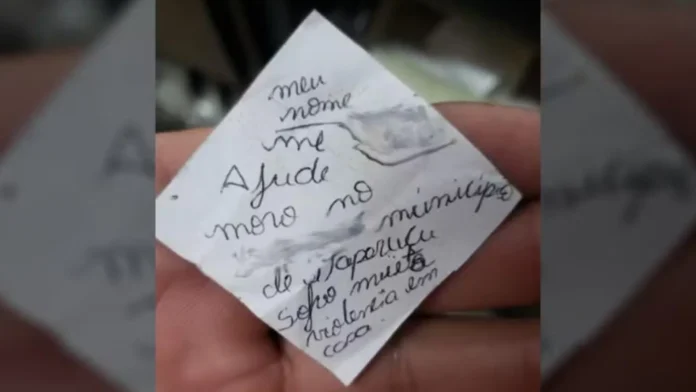 meu
nome
me
Ajude
moro no
município
de Itaporucu
Sofro muito
violencia em
casa.